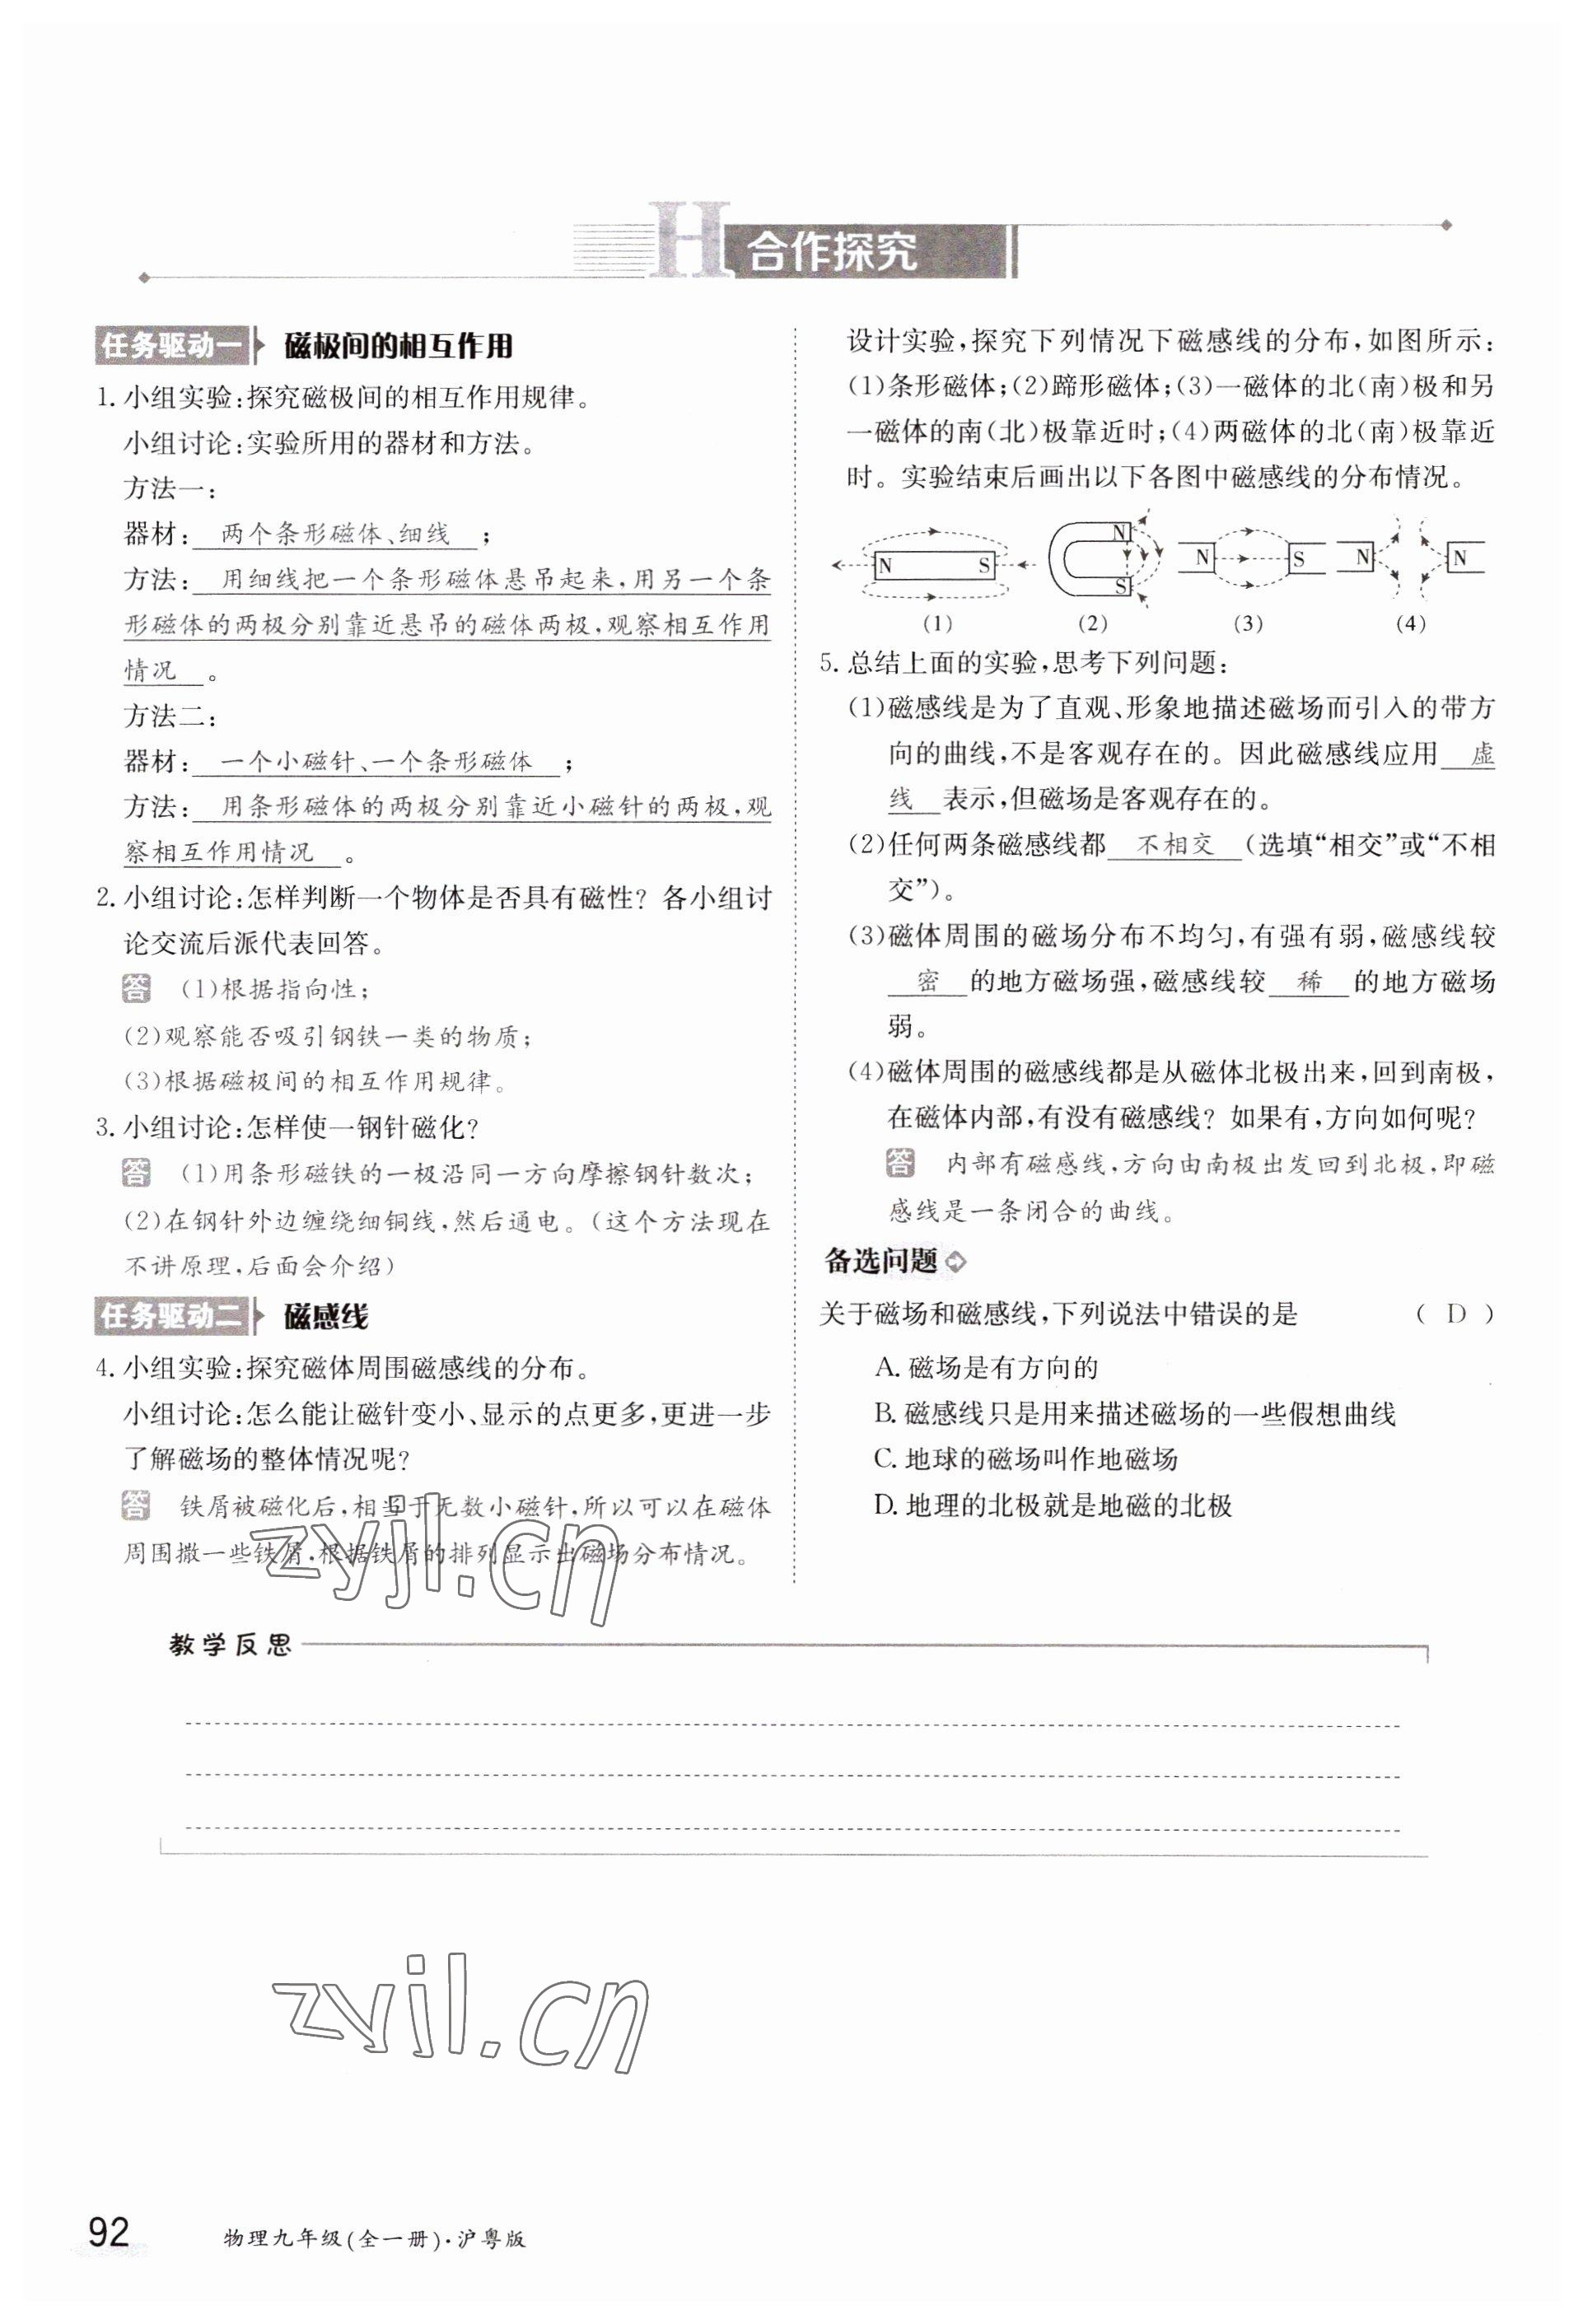 H 合作探究
任务驱动一 磁极间的相互作用
1. 小组实验:探究磁极间的相互作用规律。
小组讨论:实验所用的器材和方法。
方法一:
器材: 两个条形磁体、细线 ;
方法: 用细线把一个条形磁体悬吊起来,用另一个条
形磁体的两极分别靠近悬吊的磁体两极,观察相互作用
情况 。
方法二:
器材: 一个小磁针、一个条形磁体 ;
方法: 用条形磁体的两极分别靠近小磁针的两极,观
察相互作用情况 。
2. 小组讨论:怎样判断一个物体是否具有磁性? 各小组讨
论交流后派代表回答。
答 (1)根据指向性;
(2)观察能否吸引钢铁一类的物质;
(3)根据磁极间的相互作用规律。
3. 小组讨论:怎样使一钢针磁化?
答 (1)用条形磁铁的一极沿同一方向摩擦钢针数次;
(2)在钢针外边缠绕细铜线,然后通电。(这个方法现在
不讲原理,后面会介绍)
任务驱动二 磁感线
4. 小组实验:探究磁体周围磁感线的分布。
小组讨论:怎么能让磁针变小、显示的点更多,更进一步
了解磁场的整体情况呢?
答 铁屑被磁化后,相当于无数小磁针,所以可以在磁体
周围撒一些铁屑,根据铁屑的排列显示出磁场分布情况。
zyjl.cn
设计实验,探究下列情况下磁感线的分布,如图所示:
(1)条形磁体;(2)蹄形磁体;(3)一磁体的北(南)极和另
一磁体的南(北)极靠近时;(4)两磁体的北(南)极靠近
时。实验结束后画出以下各图中磁感线的分布情况。
N S N S N S N N
(1) (2) (3) (4)
5. 总结上面的实验,思考下列问题:
(1)磁感线是为了直观、形象地描述磁场而引入的带方
向的曲线,不是客观存在的。因此磁感线应用 虚
线 表示,但磁场是客观存在的。
(2)任何两条磁感线都 不相交 (选填“相交”或“不相
交”)。
(3)磁体周围的磁场分布不均匀,有强有弱,磁感线较
密 的地方磁场强,磁感线较 稀 的地方磁场
弱。
(4)磁体周围的磁感线都是从磁体北极出来,回到南极,
在磁体内部,有没有磁感线? 如果有,方向如何呢?
答 内部有磁感线,方向由南极出发回到北极,即磁
感线是一条闭合的曲线。
备选问题
关于磁场和磁感线,下列说法中错误的是 ( D )
A. 磁场是有方向的
B. 磁感线只是用来描述磁场的一些假想曲线
C. 地球的磁场叫作地磁场
D. 地理的北极就是地磁的北极
教学反思
zyjl.cn
92 物理九年级(全一册)·沪粤版